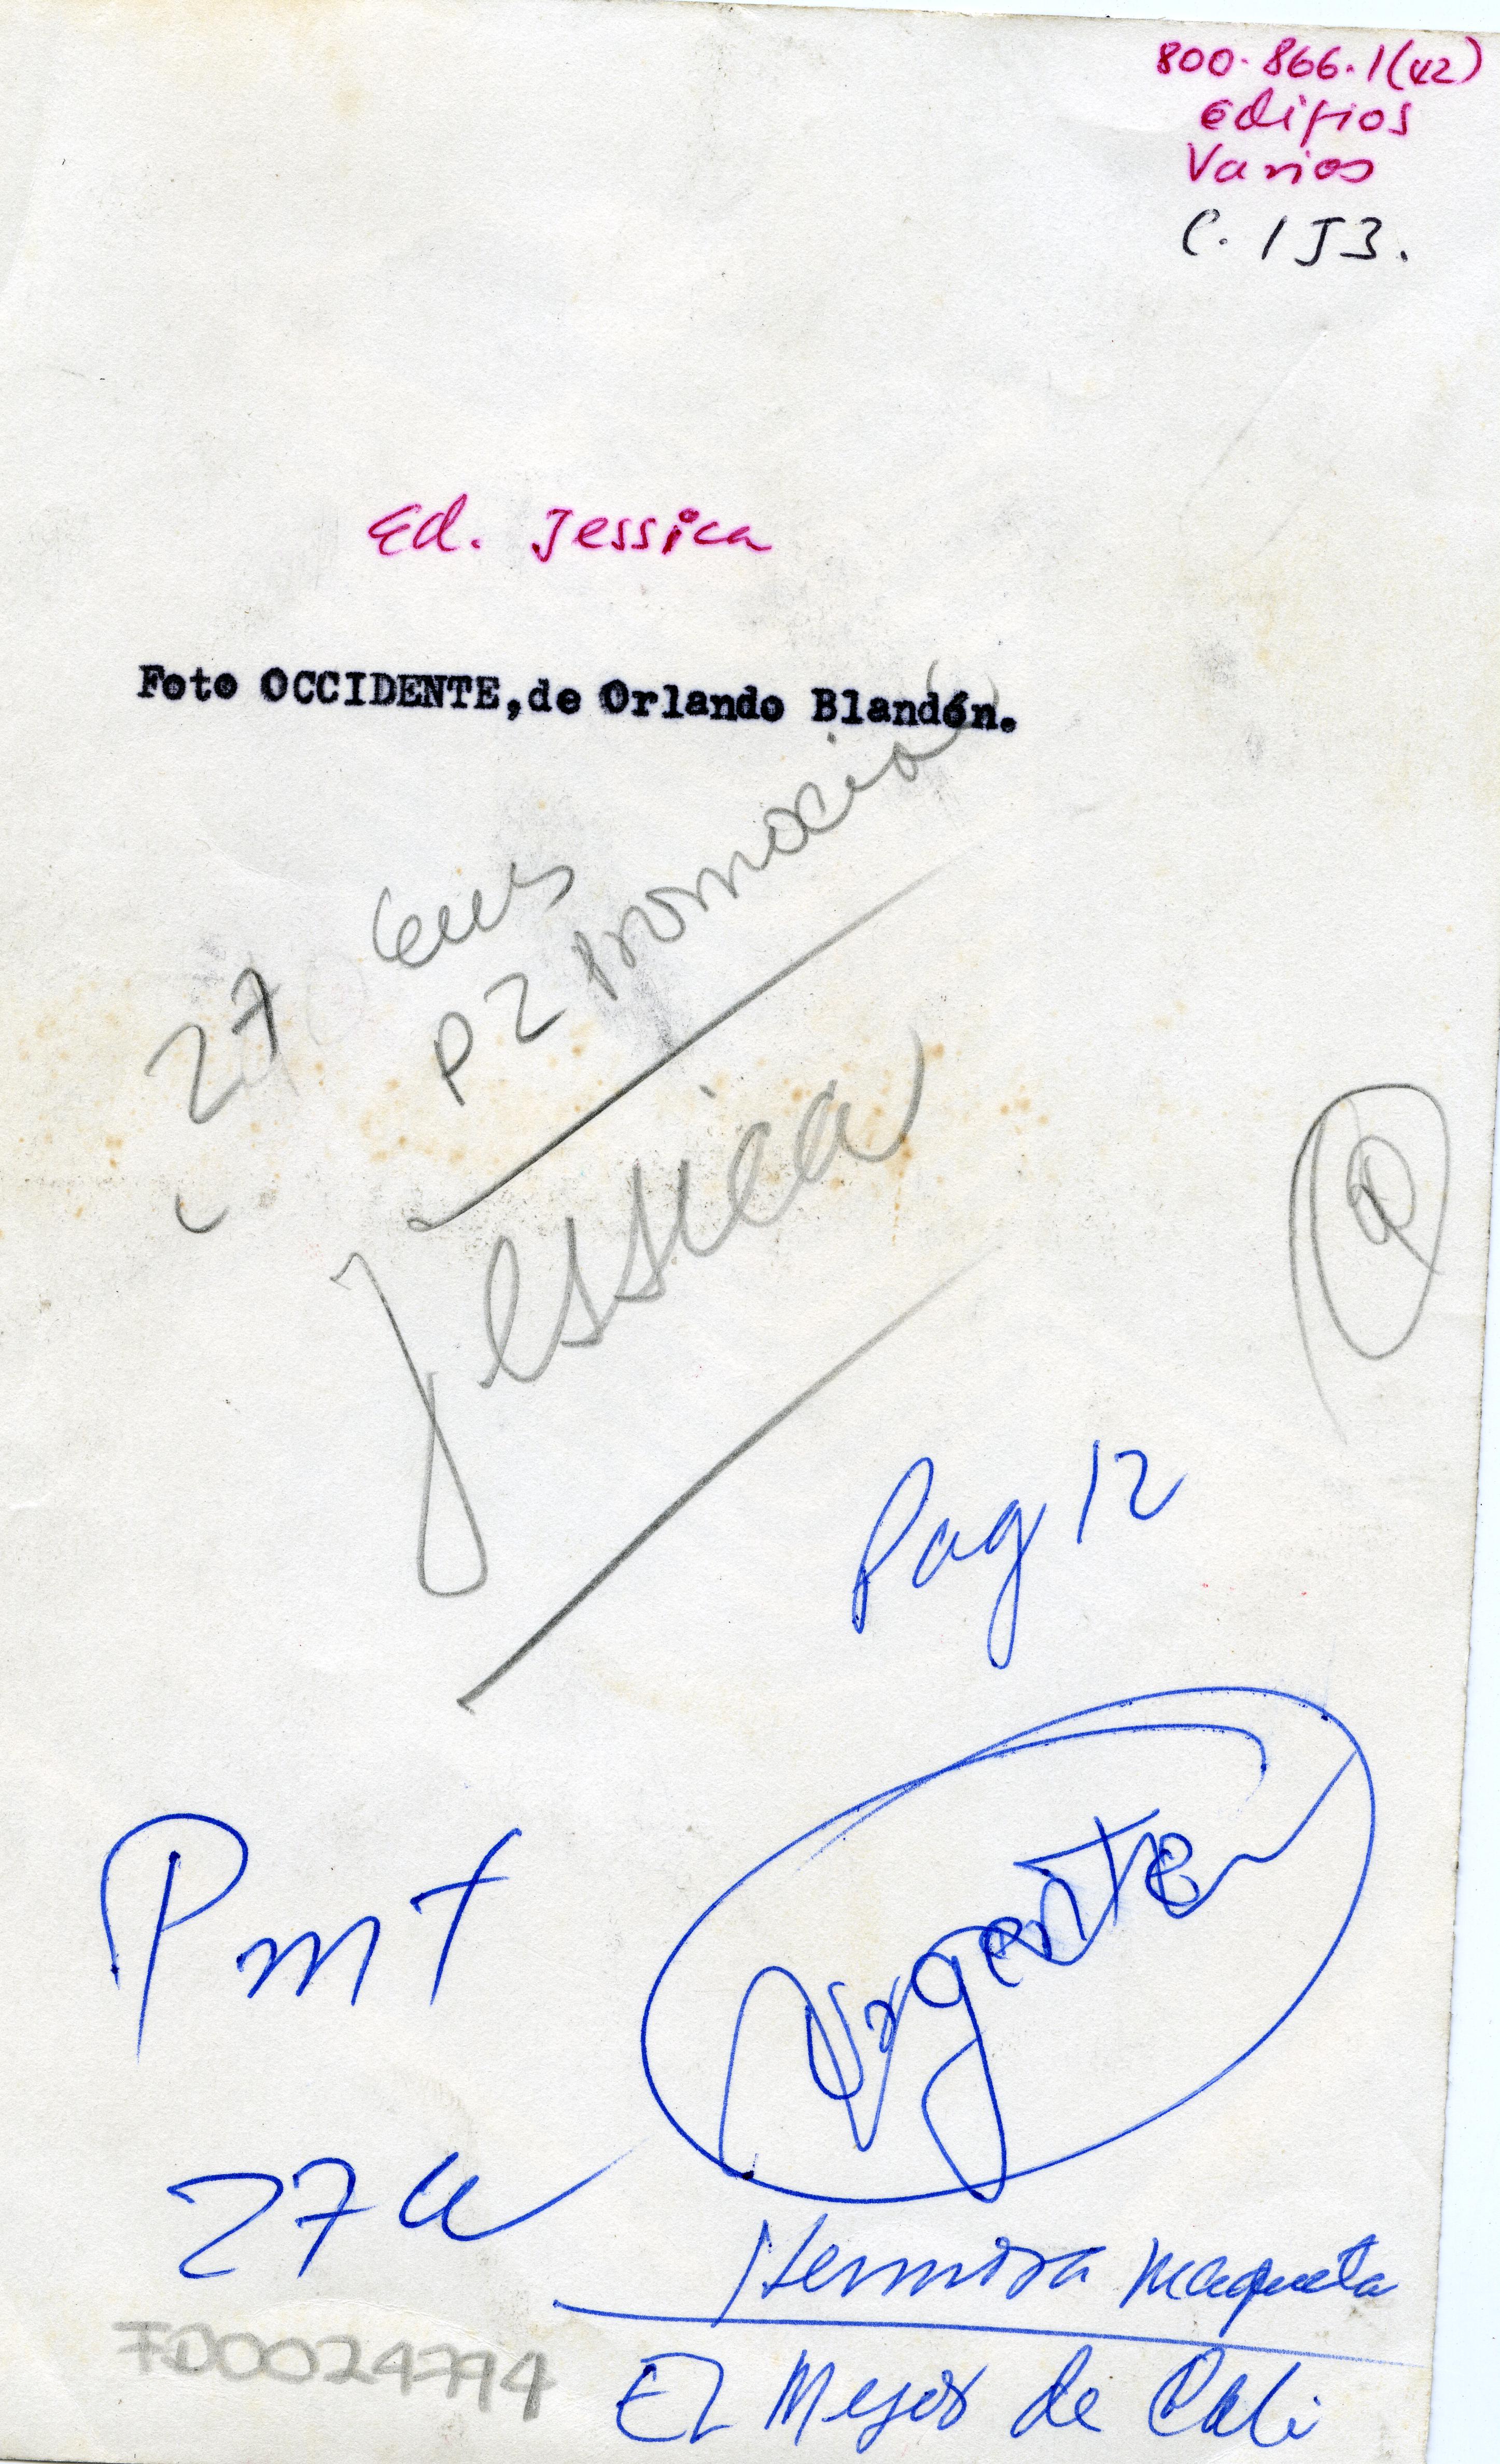 800.866.1(42)
edifios
Varios
C. 1 J3.
Ed. Jessica
Foto OCCIDENTE,de Orlando Blandón.
27 cms
P2 Promocion
Jessica
Pag 12
Pmt
Urgente
27
Hermosa maqueta
El Mejor de Cali
FD0024794